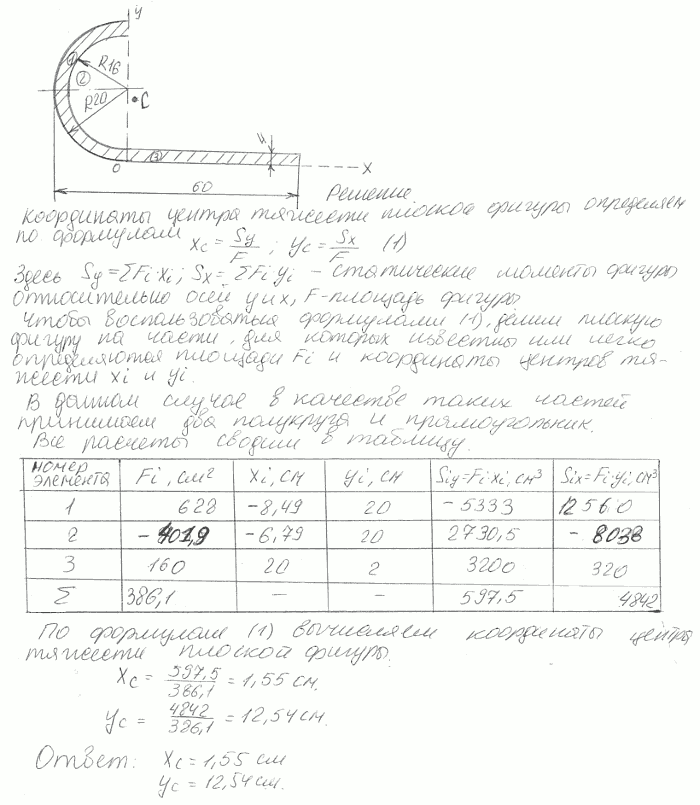 y
①
R16
②
R20
C
4
О
③
x
60
Решение.
Координаты центра тяжести плоской фигуры определяем
по формулам xc = Sy/F ; yc = Sx/F (1)
Здесь Sy=ΣFi·xi; Sx= ΣFi yi – статические моменты фигуры
относительно осей y и x, F-площадь фигуры
Чтобы воспользоваться формулами (1), делим плоскую
фигуру на части, для которых известны или легко
определяются площади Fi и координаты центров тя-
жести xi и yi.
В данном случае в качестве таких частей
принимаем два полукруга и прямоугольник.
Все расчеты сводим в таблицу.
номер элемента Fi, см² Xi, см yi, см Siy=Fi·xi, см³ Six=Fi·yi, см³
1 628 -8,49 20 -5333 12560
2 -401,9 -6,79 20 2730,5 -8038
3 160 20 2 3200 320
Σ 386,1 – – 597,5 4842
По формулам (1) вычисляем координаты центра
тяжести плоской фигуры.
Xc = 597,5/386,1 = 1,55 см.
yc = 4842/386,1 = 12,54 см.
Ответ: xc = 1,55 см
yc = 12,54 см.